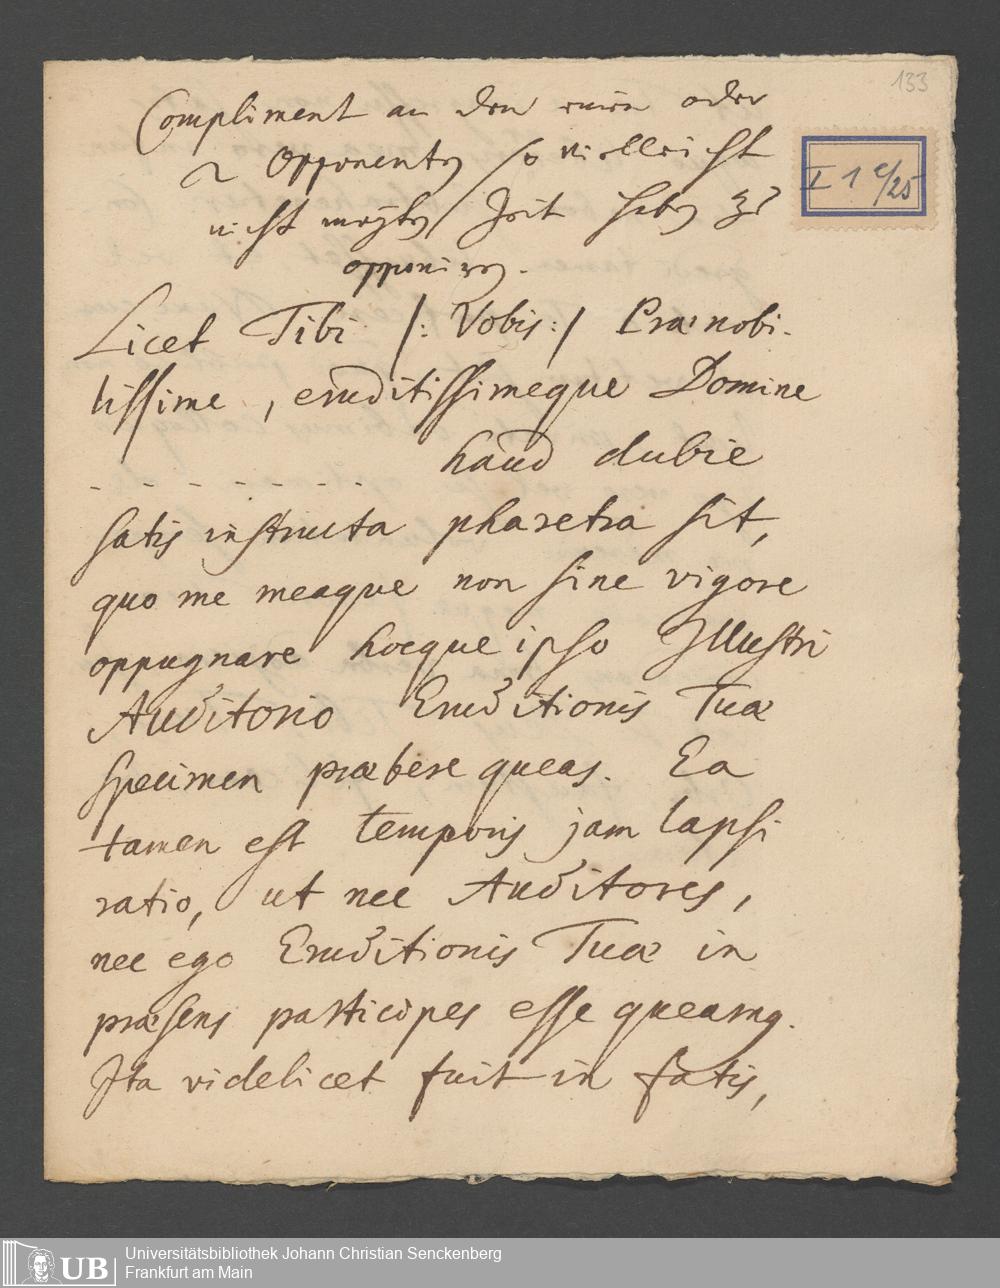 133
Compliment an den einen oder
2 Opponenten so vielleicht
nicht mögten Zeit haben zu
opponiren.
I 1 c/25
Licet Tibi /: Vobis :/ Prænobi-
lissime, eruditissimeque Domine
- - - - - - - haud dubie
satis instructa pharetra sit,
quo me meaque non sine vigore
oppugnare hocque ipso Illustri
Auditorio Eruditionis Tuæ
specimen præbere queas. Ea
tamen est temporis jam lapsi
ratio, ut nec Auditores,
nec ego Eruditionis Tuæ in
præsens participes esse queamq.
Ita videlicet fuit in fatis,
UB Universitätsbibliothek Johann Christian Senckenberg
Frankfurt am Main